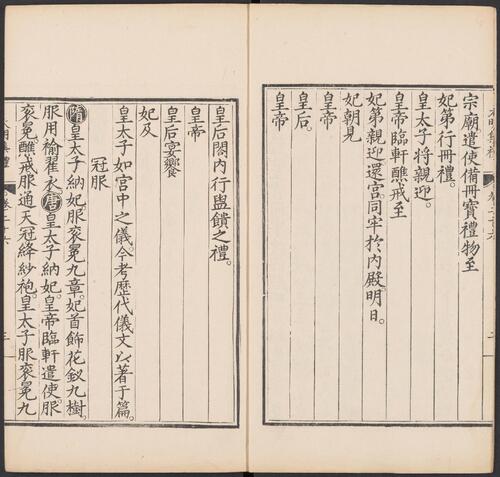 宗廟遣使備冊寶禮物至
妃第行冊禮。
皇太子將親迎。
皇帝臨軒醮戒至
妃第親迎還宮。同牢於內殿。明日。
妃朝見
皇帝
皇后。
皇帝
皇后閤內行盥饋之禮。
皇帝
皇后宴饗
妃及
皇太子如宮中之儀今考歷代儀文以著于篇。
冠服
隋皇太子納妃。服袞冕九章。妃首飾花釵九樹。
服用褕翟衣。唐皇太子納妃。皇帝臨軒遣使。服
袞冕醮戒服通天冠絳紗袍。皇太子服袞冕九